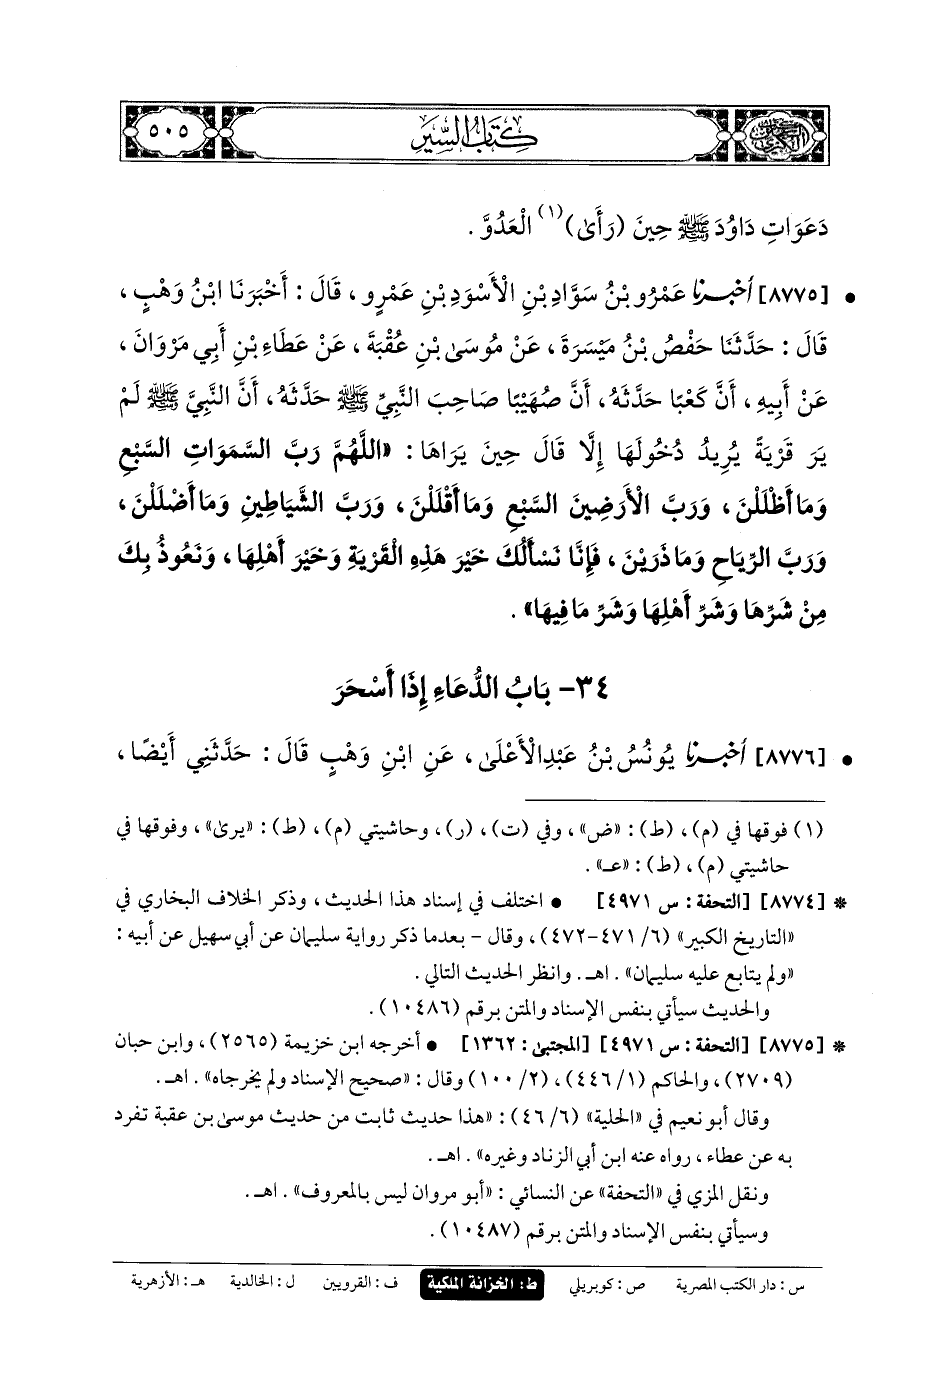 كتاب السير
٥٠٥
دَعَوَاتِ دَاوُدَ ﷺ حِينَ (رَأَىٰ)(١) الْعَدُوَّ.
• [٨٧٧٥] أخبرنا عَمْرُو بْنُ سَوَّادِ بْنِ الْأَسْوَدِ بْنِ عَمْرٍو، قَالَ: أَخْبَرَنَا ابْنُ وَهْبٍ،
قَالَ: حَدَّثَنَا حَفْصُ بْنُ مَيْسَرَةَ، عَنْ مُوسَىٰ بْنِ عُقْبَةَ، عَنْ عَطَاءِ بْنِ أَبِي مَرْوَانَ،
عَنْ أَبِيهِ، أَنَّ كَعْبًا حَدَّثَهُ، أَنَّ صُهَيْبًا صَاحِبَ النَّبِيِّ ﷺ حَدَّثَهُ، أَنَّ النَّبِيَّ ﷺ لَمْ
يَرَ قَرْيَةً يُرِيدُ دُخُولَهَا إِلَّا قَالَ حِينَ يَرَاهَا: «اللَّهُمَّ رَبَّ السَّمَوَاتِ السَّبْعِ
وَمَا أَظْلَلْنَ، وَرَبَّ الْأَرَضِينَ السَّبْعِ وَمَا أَقْلَلْنَ، وَرَبَّ الشَّيَاطِينِ وَمَا أَضْلَلْنَ،
وَرَبَّ الرِّيَاحِ وَمَا ذَرَيْنَ، فَإِنَّا نَسْأَلُكَ خَيْرَ هَذِهِ الْقَرْيَةِ وَخَيْرَ أَهْلِهَا، وَنَعُوذُ بِكَ
مِنْ شَرِّهَا وَشَرِّ أَهْلِهَا وَشَرِّ مَا فِيهَا».
٣٤- بَابُ الدُّعَاءِ إِذَا أَسْحَرَ
• [٨٧٧٦] أخبرنا يُونُسُ بْنُ عَبْدِ الْأَعْلَىٰ، عَنِ ابْنِ وَهْبٍ قَالَ: حَدَّثَنِي أَيْضًا،
(١) فوقها في (م)، (ط): «ض»، وفي (ت)، (ر)، وحاشيتي (م)، (ط): «يرىٰ»، وفوقها في
حاشيتي (م)، (ط): «عـ».
* [٨٧٧٤] [التحفة: س ٤٩٧١] • اختلف في إسناد هذا الحديث، وذكر الخلاف البخاري في
«التاريخ الكبير» (٦/ ٤٧١-٤٧٢)، وقال - بعدما ذكر رواية سليمان عن أبي سهيل عن أبيه:
«ولم يتابع عليه سليمان». اهـ. وانظر الحديث التالي.
والحديث سيأتي بنفس الإسناد والمتن برقم (١٠٤٨٦).
* [٨٧٧٥] [التحفة: س ٤٩٧١] [المجتبىٰ: ١٣٦٢] • أخرجه ابن خزيمة (٢٥٦٥)، وابن حبان
(٢٧٠٩)، والحاكم (١/ ٤٤٦)، (٢/ ١٠٠) وقال: «صحيح الإسناد ولم يخرجاه». اهـ.
وقال أبو نعيم في «الحلية» (٦/ ٤٦): «هذا حديث ثابت من حديث موسىٰ بن عقبة تفرد
به عن عطاء، رواه عنه ابن أبي الزناد وغيره». اهـ.
ونقل المزي في «التحفة» عن النسائي: «أبو مروان ليس بالمعروف». اهـ.
وسيأتي بنفس الإسناد والمتن برقم (١٠٤٨٧).
س: دار الكتب المصرية ص: كوبريلي ط: الخزانة الملكية ف: القرويين ل: الخالدية هـ: الأزهرية